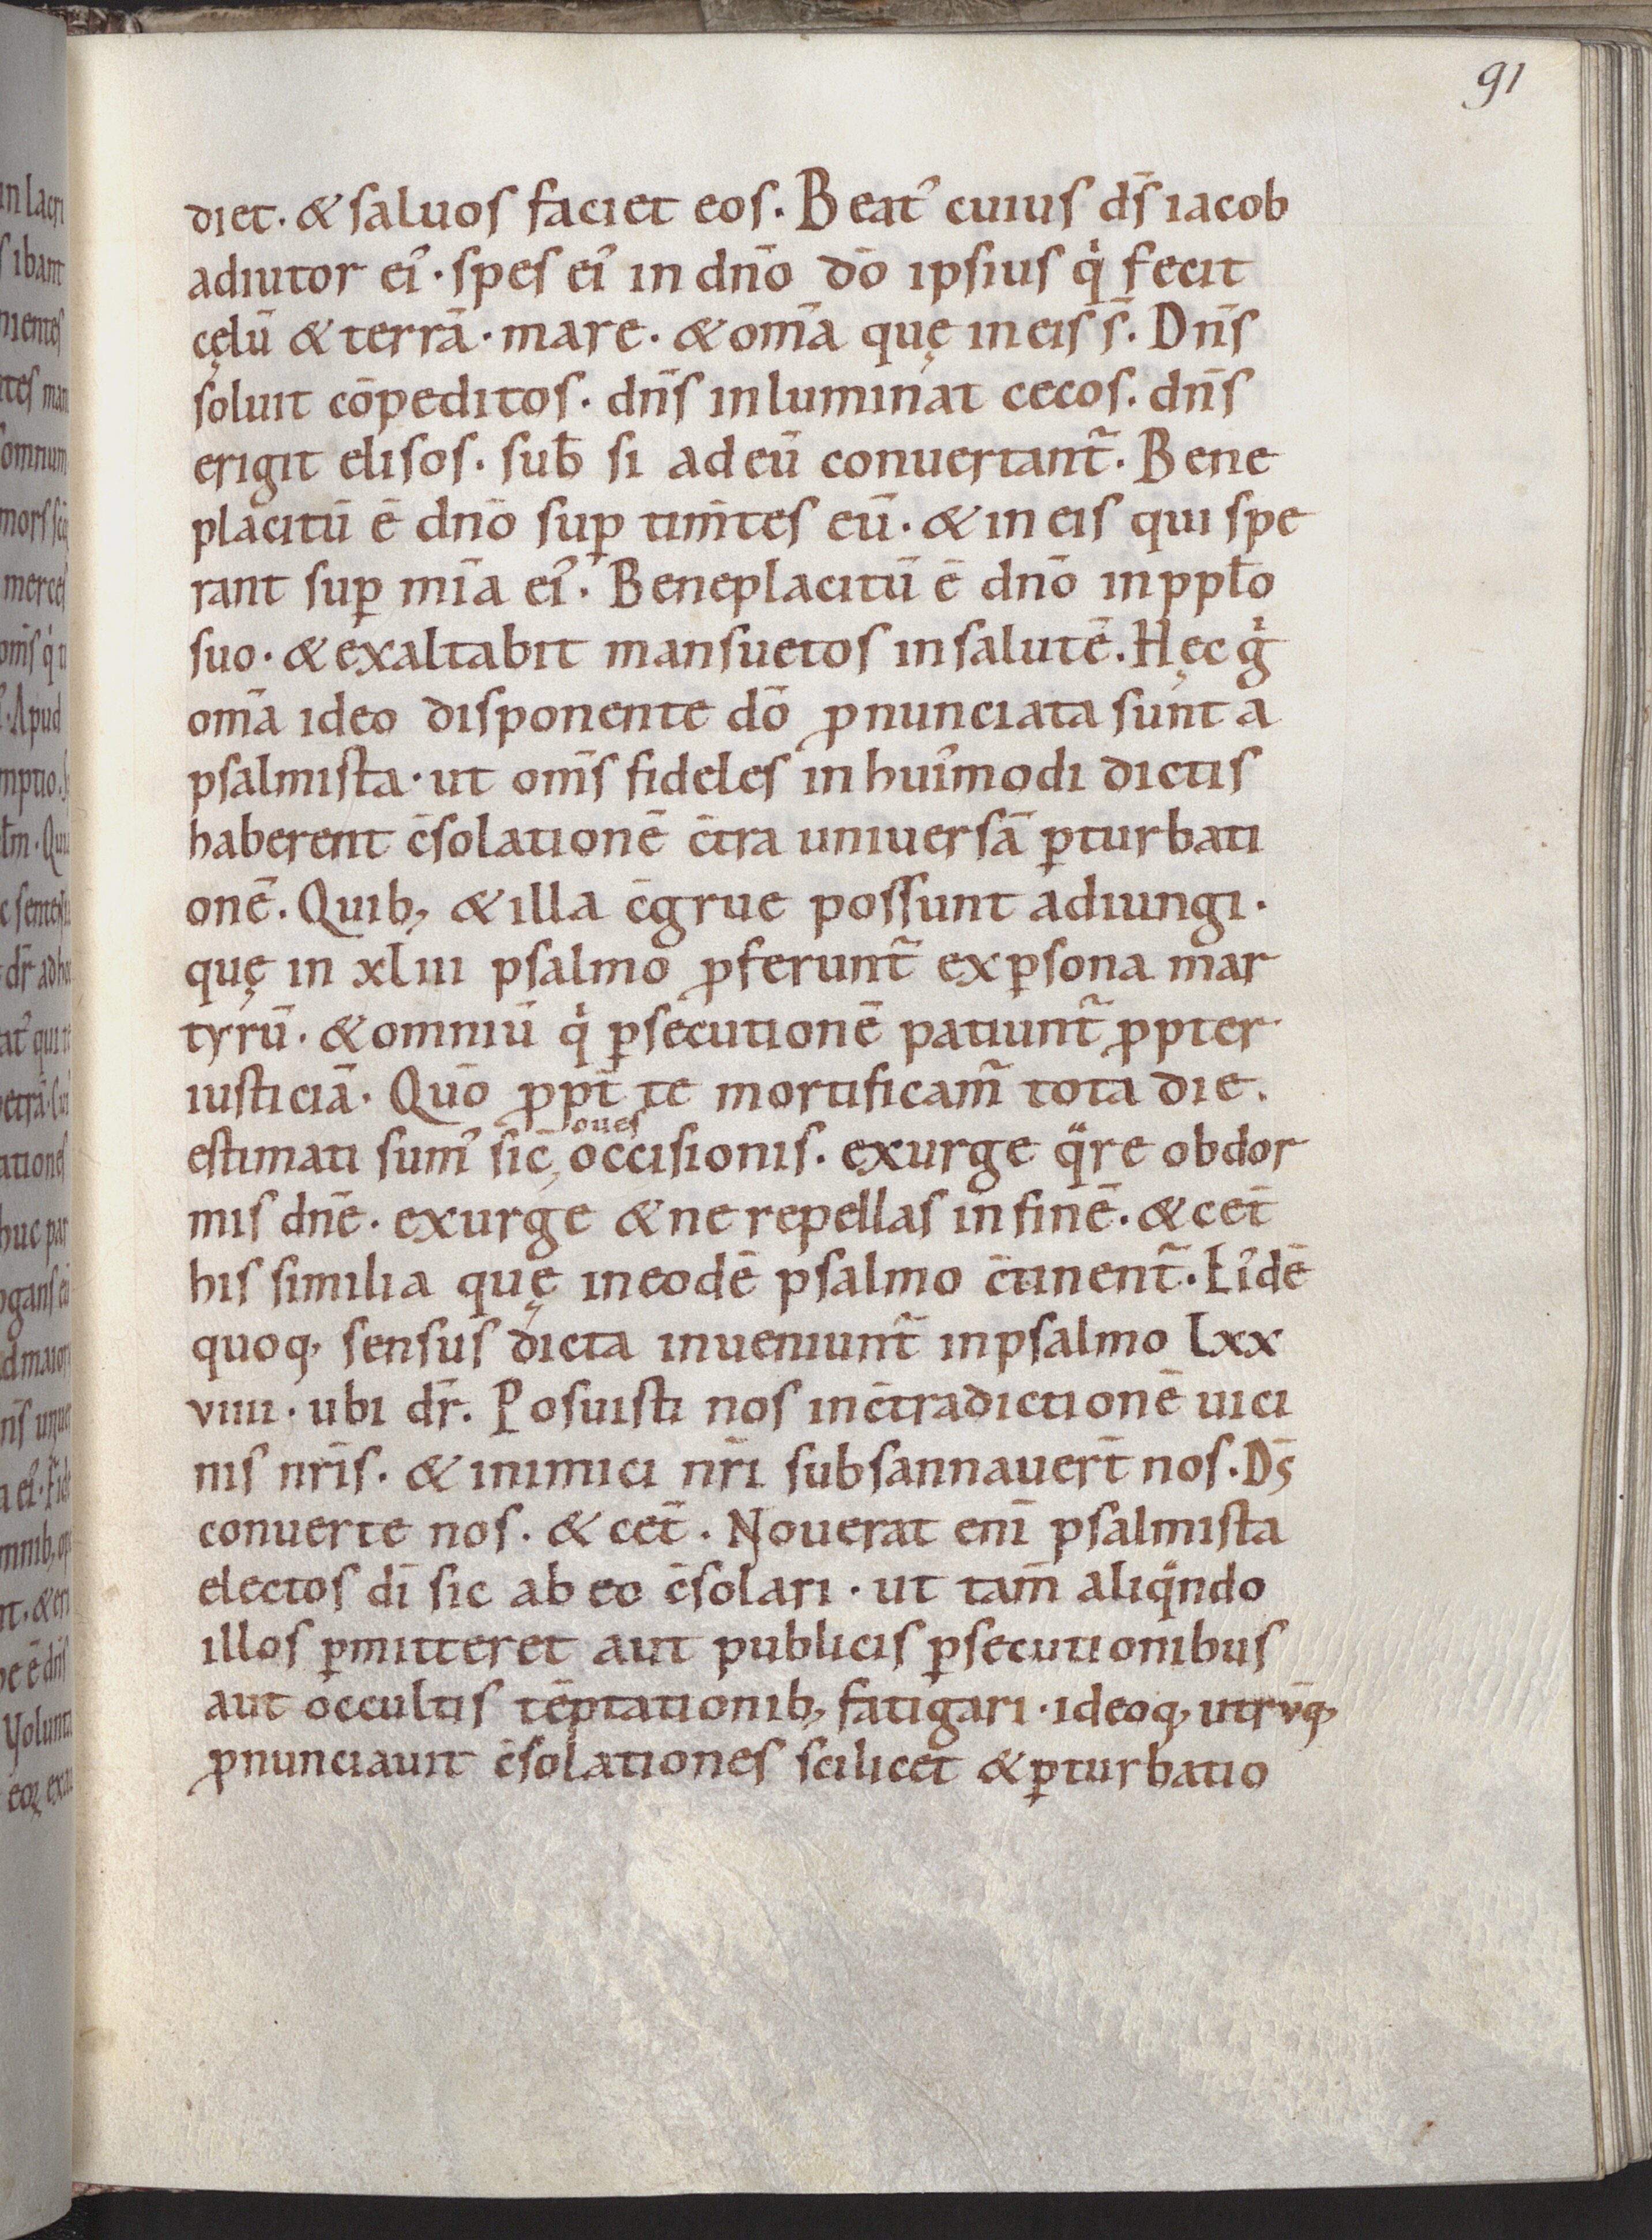 91
diet. & saluos faciet eos. Beatꝰ cuius ds̄ iacob
adiutor eiꝰ. spes eiꝰ in dn̄o dō ipsius qͥ fecit
cęlū & terrā. mare. & om̄a quę in eis s̄. Dn̄s
soluit cōpeditos. dn̄s inluminat cecos. dn̄s
erigit elisos. sub̄ si ad eū conuertant̃. Bene
placitū ē dn̄o sup̱ tim̄tes eū. & in eis qui spe
rant sup̱ mīa eiꝰ. Beneplacitū ē dn̄o in ppl̄o
suo. & exaltabit mansuetos in salutē. Hęc gͥ
om̄a ideo disponente dō ꝓnunciata sunt a
psalmista. ut om̄s fideles in huiꝰmodi dictis
haberent c̄solationē c̄tra uniuersā ꝑturbati
onē. Quib; & illa c̄grue possunt adiungi.
quę in xliii psalmo ꝓferunt̃ ex ꝑsona mar
tyrū. & omniū qͥ ꝑsecutionē patiunt̃ ꝓpter
iusticiā. Quō ꝓpt̄ te mortificam̃ tota die.
oues
estimati sumꝰ sic̄ occisionis. exurge qͣre obdor
mis dn̄e. exurge & ne repellas in finē. & cet̄
his similia quę in eodē psalmo c̄tinent̃. Eiꝰdē
quoq; sensus dicta inueniunt̃ in psalmo lxx
viiii. ubi dr̄. Posuisti nos in c̄tradictionē uici
nis nr̄is. & inimici nr̄i subsannauer̄t nos. Ds̄
conuerte nos. & cet̄. Nouerat eni̅ psalmista
electos dī sic ab eo c̄solari. ut tam̄ aliqͣndo
illos ꝑmitteret aut publicis ꝑsecutionibus
aut occultis tēptationib; fatigari. ideoq; utrūq;
ꝓnunciauit c̄solationes scilicet & ꝑturbatio